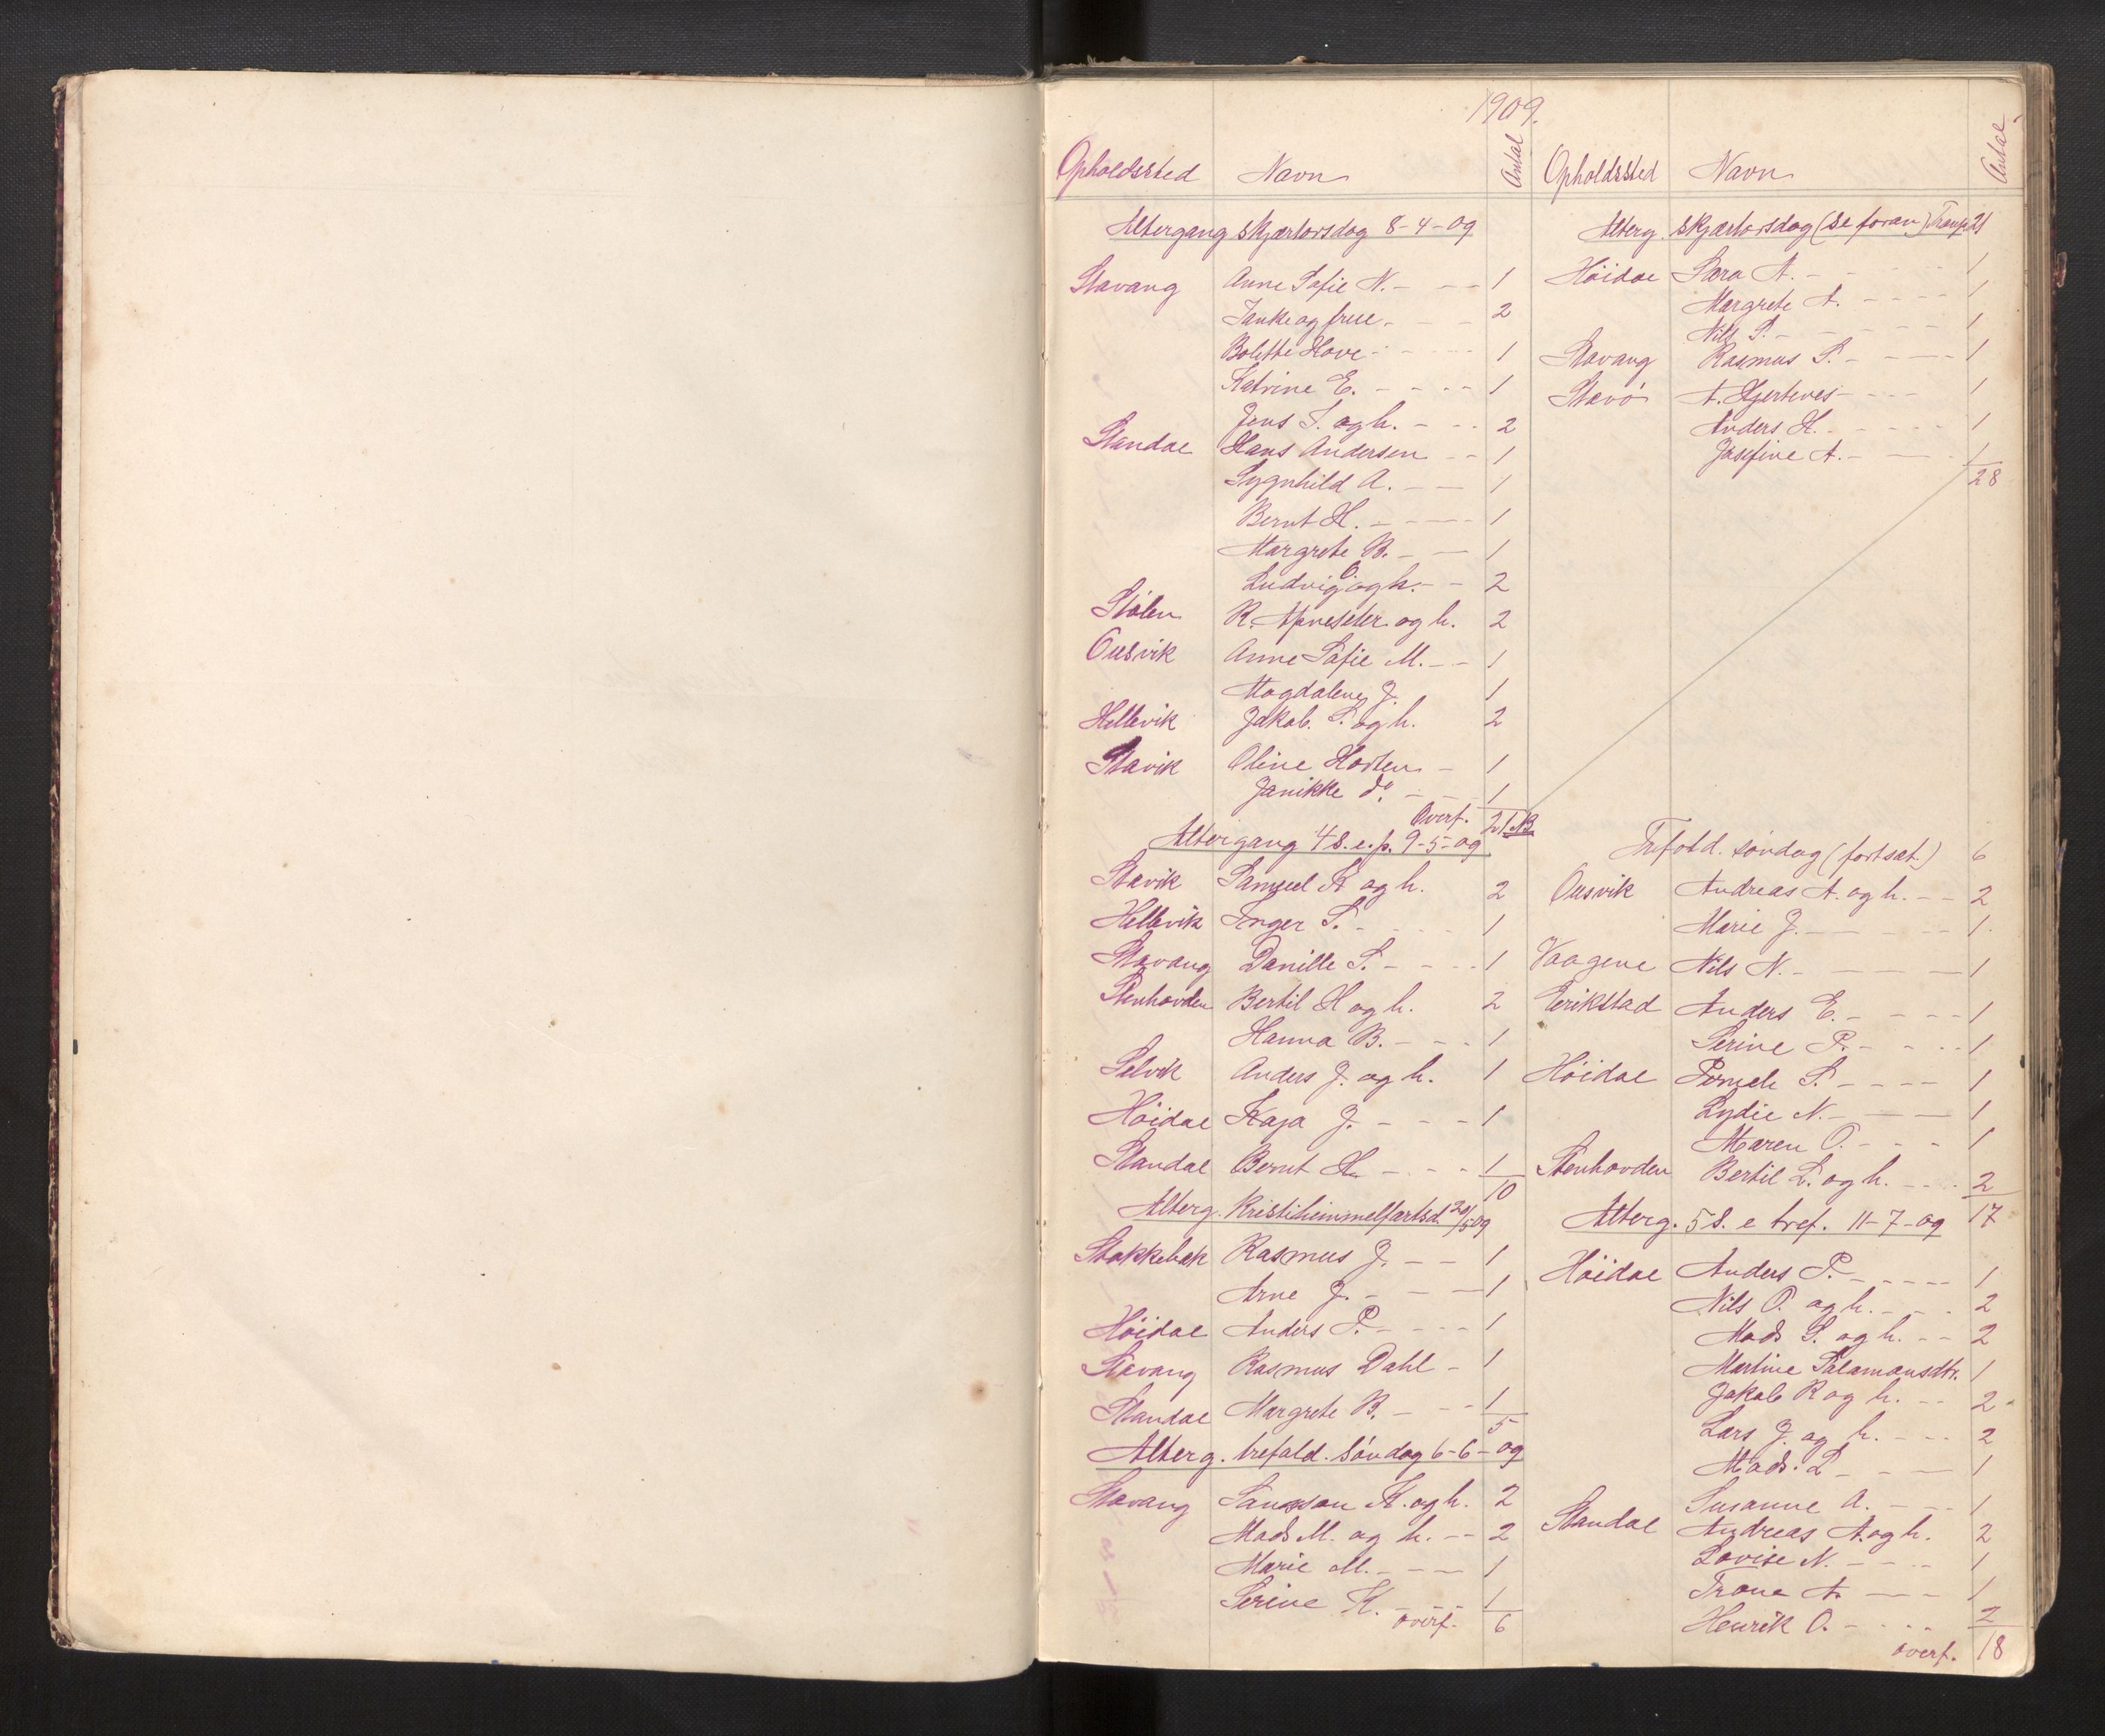 1909.
Opholdssted Navn Antal
Altergang skjærtorsdag 8-4-09
Stavang Anne Sofie N. - - - 1
Janke og frue. - - - 2
Bolette Hove - - - - 1
Katrine E. - - - - 1
Jens S. og h. - - - 2
Standal Hans Andersen - - 1
Sygnhild A. - - 1
Bernt H. - - - - 1
Margrete B. - - 1
Ludvig O. og h. - - 2
Stølen R. og h. 2
Ousvik Anne Sofie M. - - 1
Magdalene J. 1
Hellevik Jakob S. og h. 2
Stavik Oline Horten - 1
Janikke do. - - 1
Overf. 21 NB
Altergang 4 s. e. p. 9-5-09
Stavik Samuel K og h. 2
Hellevik Inger S. - - - 1
Stavang Danille S. - - - - 1
Stenhovden Bertil H og h. 2
Hanna B. - - - 1
Selvik Anders J. og h. 1
Höidal Kaja J. - - - - 1
Standal Bernt H - - - - 1
10
Alterg. Kristihimmelfartsd. 20/5 09
Stokkebæk Rasmus J. - - 1
Arne J. - - - 1
Höidal Anders P. - - - - 1
Stavang Rasmus Dahl - 1
Standal Margrete B. - - - 1
5
Alterg. trefold. søndag 6-6-09
Stavang Samson K. og h. 2
Mads M. og h. - - 2
Marie M. - - - - 1
Serine K. - - - 1
overf. 6
Opholdssted Navn Antal
Alterg. Skjærtorsdag (se foran) Transp. 21
Höidal Sara A. - - - - 1
Margrete A. - - - - 1
Nils S. - - - - 1
Stavang Rasmus S. - - - - 1
Stavö A. Hjertenes - - - 1
Anders H. - - - - - 1
Josefine A. - - - 1
28
Trefold. søndag (fortsat.) 6
Ousvik Andreas A. og h. - - 2
Marie J. - - - - - 1
Vaagene Nils N. - - - 1
Erikstad Anders E. - - - - 1
Serine P. - - - - 1
Höidal S. - - - - 1
Lydie N. - - - 1
Maren O. - - - 1
Stenhovden Bertil L. og h. - - - 2
17
Alterg. 5 S. e tref. 11-7-09
Höidal Anders P. - - - - 1
Nils O. og h. - - - 2
Mads S. og h. - - 2
Martine Salamonsdtr. 1
Jakob R og h. - - 2
Lars J. og h. - - - 2
Mads. L - - - 1
Susanne A. - - - 1
Standal Andreas A. og h. 2
Lovise N. - - - - 1
Trone A. - - - 1
Henrik O. - - - - 2
overf. 18